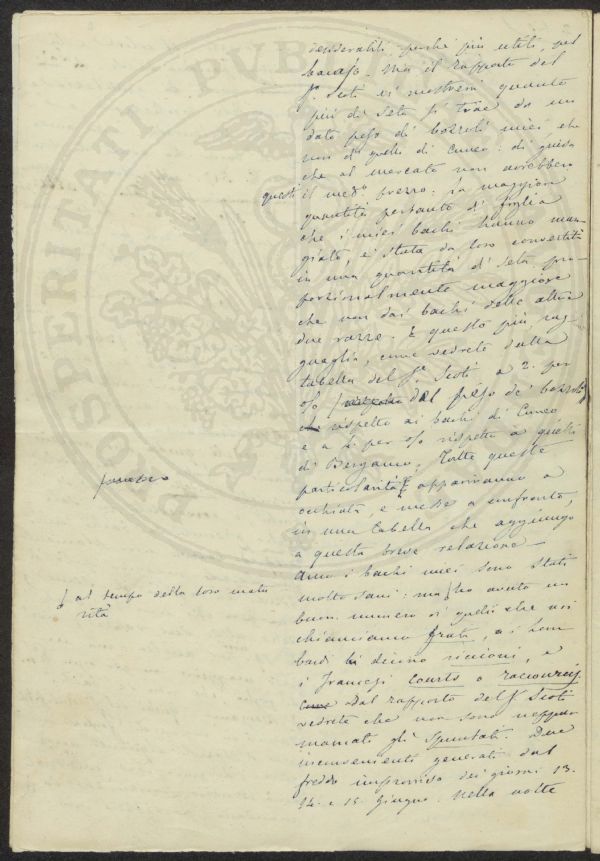 desiderabili perchè più utili, sul
Ma il rapporto del
Sr. Scoti vi mostrerà quanto
più di seta si trae da un
dato peso di bozzoli miei, che
non di quelli di Cuneo: di guisa
che al mercato non avrebbero
questi il med.o prezzo. La maggior
quantità pertanto di foglia
che i miei bachi hanno man-
giato, è stata da loro convertita
in una quantità di seta pro-
porzionalmente maggiore
che non dai bachi delle altre
due razze. E questo più rag-
guaglia, come vedrete dalla
tabella del Sr. Scoti a 2. per
0/0 dal peso de' bozzoli
rispetto ai bachi di Cuneo
e a per 0/0 rispetto a quelli
di Bergamo. Tutte queste
particolarità appariranno a
occhiata, e messe a confronto,
in una tabella che aggiungo
a questa breve relazione.
i bachi miei sono stati
molto sani: ma ho avuto un
al tempo della loro matu
rità
buon numero di quelli che noi
chiamiamo frati, a i Lom
bardi li dicono riccioni, e
i Francesi courts o raccourcis.
Dal rapporto del Sr. Scoti
vedrete che non sono neppur
mancati gli spuntati. Due
inconvenienti generati dal
freddo improvviso dei giorni 13.
14. e 15. Giugno. Nella notte
PVB